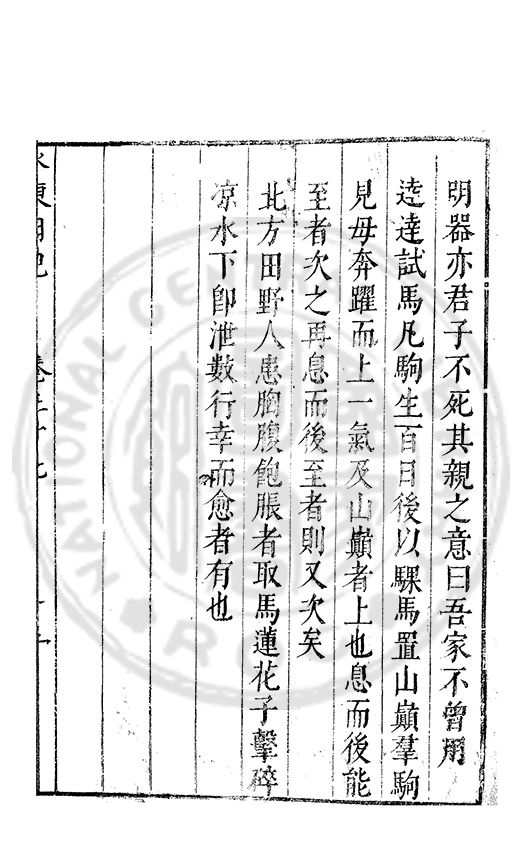 明器亦君子不死其親之意曰吾家不曾用
逵達試馬凡駒生百日後以騍馬置山巔羣駒
見母奔躍而上一氣及山巔者上也息而後能
至者次之再息而後至者則又次矣
北方田野人患胸腹飽脹者取馬蓮花子擊碎
凉水下卽泄數行幸而愈者有也
東日記
NATIONAL CENTRAL LIBRARY